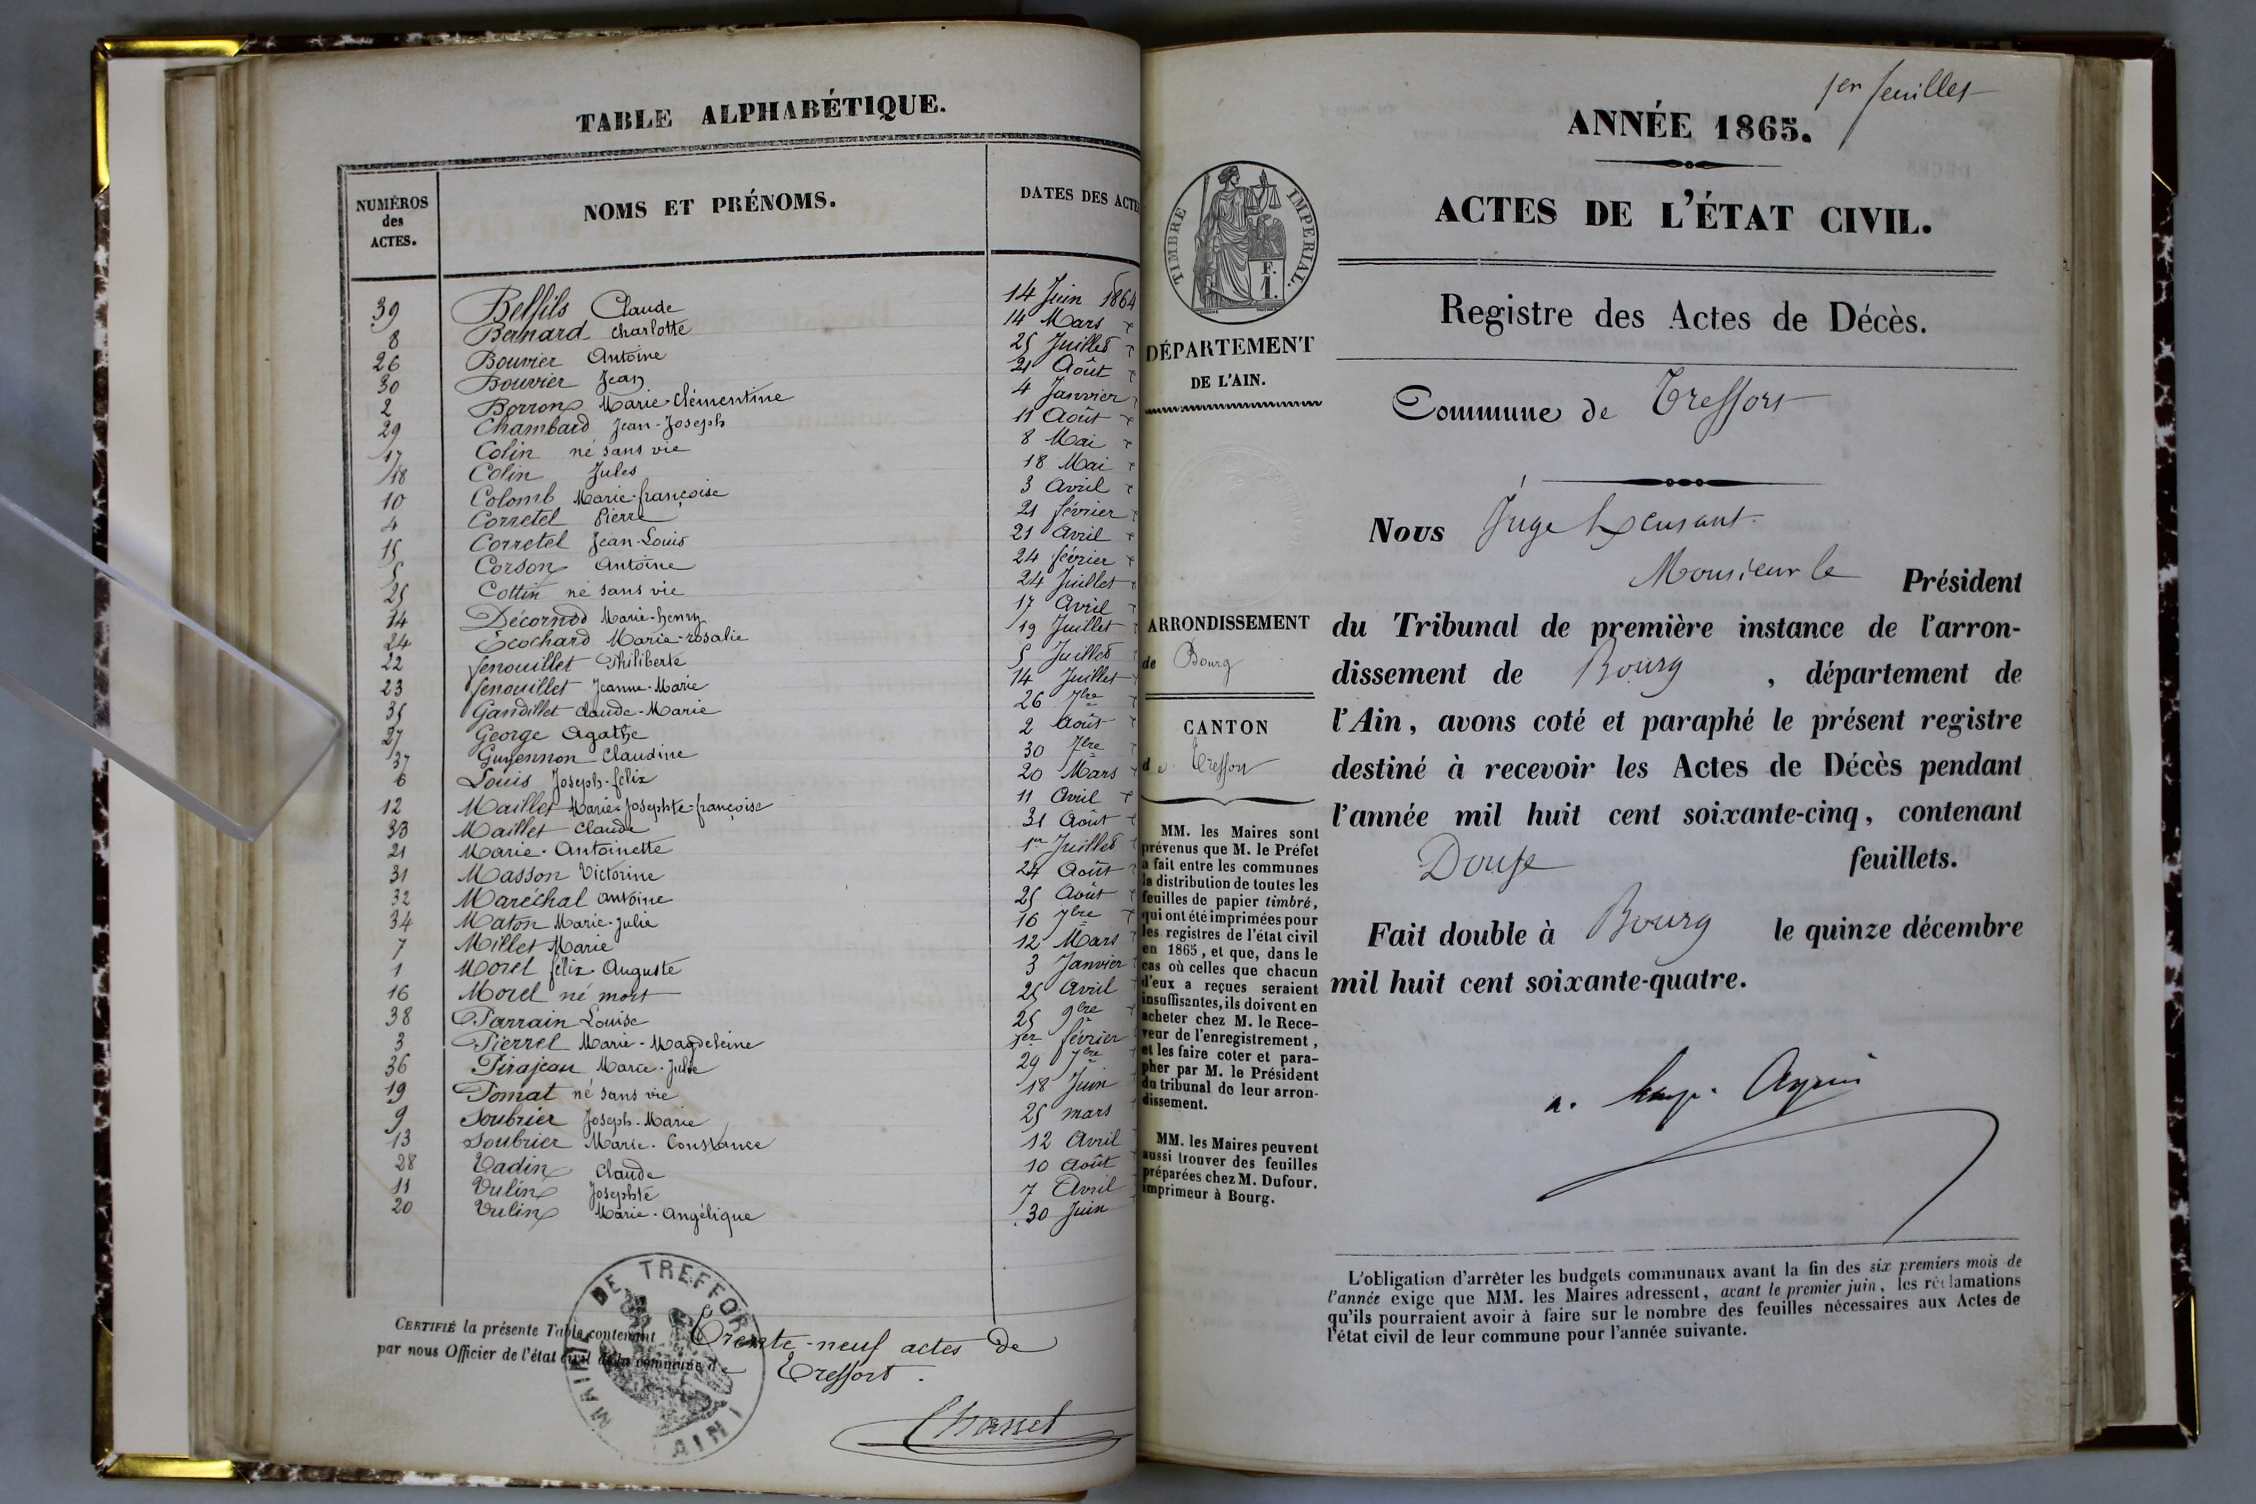 TABLE ALPHABÉTIQUE.
NUMÉROS des ACTES. NOMS ET PRÉNOMS. DATES DES ACTE
39 Belfils Claude 14 Juin 1864
8 Bernard Charlotte 14 Mars
26 Bouvier Antoine 25 Juillet
30 Bouvier Jean 21 Août
2 Borron Marie-Clémentine 4 Janvier
29 Chambard Jean-Joseph 11 Août
17 Colin né sans vie 8 Mai
18 Colin Jules 18 Mai
10 Colomb Marie-françoise 3 Avril
4 Corretel Pierre 21 février
15 Corretel Jean-Louis 21 Avril
5 Corson Antoine 24 février
25 Cottin né sans vie 24 Juillet
14 Décornod Marie-henry 17 Avril
24 Ecochard Marie-rosalie 19 Juillet
22 fenouillet Philiberte 5 Juillet
23 fenouillet Jeanne-Marie 14 Juillet
35 Gandillet Claude-Marie 26 7bre
27 George Agathe 2 Août
37 Guyennon Claudine 30 7bre
6 Louis Joseph-félix 20 Mars
12 Maillet Marie-Josephte-françoise 11 Avril
33 Maillet Claude 31 Août
21 Marie-Antoinette 1er Juillet
31 Masson Victorine 24 Août
32 Maréchal Antoine 25 Août
34 Maton Marie-Julie 16 7bre
7 Millet Marie 12 Mars
1 Morel félix-Auguste 3 Janvier
16 Morel né mort 25 Avril
38 Parrain Louise 25 9bre
3 Pierrel Marie-Magdeleine 1er février
36 Pirajean Marie-Julie 29 7bre
19 Pomat né sans vie 18 Juin
9 Soubrier Joseph-Marie 25 mars
13 Soubrier Marie-Constance 12 Avril
28 Vadin Claude 10 Août
11 Vulin Josephte 7 Avril
20 Vulin Marie-Angélique 30 Juin
MAIRIE DE TREFFORT
(AIN)
CERTIFIÉ la présente Table contenant Trente-neuf actes de
par nous Officier de l'état civil de la commune de Treffort.
Chasset
1er feuillet
ANNÉE 1865.
ACTES DE L'ÉTAT CIVIL.
Registre des Actes de Décès.
TIMBRE IMPÉRIAL.
F.
1.
DÉPARTEMENT
DE L'AIN.
ARRONDISSEMENT
de Bourg
CANTON
de Treffort
MM. les Maires sont
prévenus que M. le Préfet
a fait entre les communes
la distribution de toutes les
feuilles de papier timbré,
qui ont été imprimées pour
les registres de l'état civil
en 1865, et que, dans le
cas où celles que chacun
d'eux a reçues seraient
insuffisantes, ils doivent en
acheter chez M. le Rece-
veur de l'enregistrement,
et les faire coter et para-
pher par M. le Président
du tribunal de leur arron-
dissement.
MM. les Maires peuvent
aussi trouver des feuilles
préparées chez M. Dufour,
imprimeur à Bourg.
Commune de Treffort
Nous Juge
Monsieur le Président
du Tribunal de première instance de l'arron-
dissement de Bourg, département de
l'Ain, avons coté et paraphé le présent registre
destiné à recevoir les Actes de Décès pendant
l'année mil huit cent soixante-cinq, contenant
Douze feuillets.
Fait double à Bourg le quinze décembre
mil huit cent soixante-quatre.
L'obligation d'arrêter les budgets communaux avant la fin des six premiers mois de
l'année exige que MM. les Maires adressent, avant le premier juin, les réclamations
qu'ils pourraient avoir à faire sur le nombre des feuilles nécessaires aux Actes de
l'état civil de leur commune pour l'année suivante.